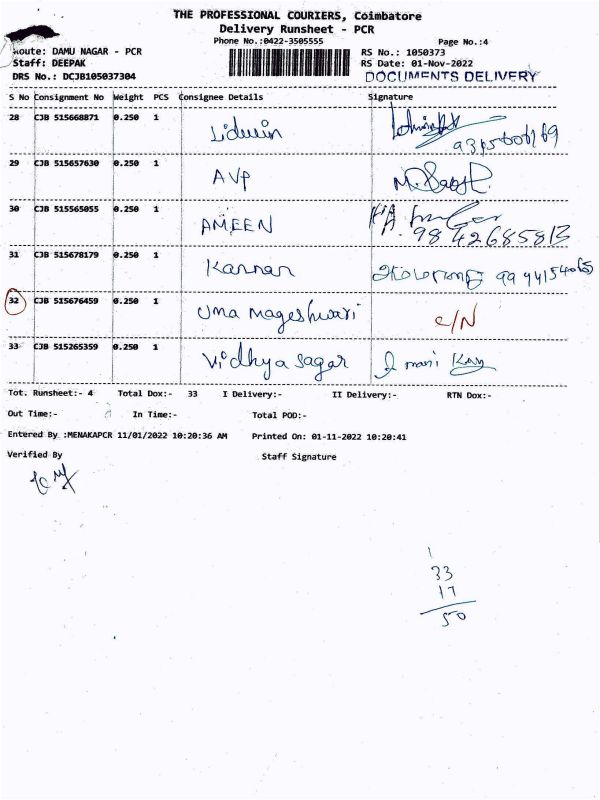 THE PROFESSIONAL COURIERS, Coimbatore
Delivery Runsheet - PCR
Phone No.:0422-3505555 Page No.:4
Route: DAMU NAGAR - PCR RS No.: 1050373
Staff: DEEPAK RS Date: 01-Nov-2022
DRS No.: DCJB105037304 DOCUMENTS DELIVERY
S No Consignment No Weight PCS Consignee Details Signature
28 CJB 515668871 0.250 1 Lidwin
29 CJB 515657630 0.250 1 AVP
30 CJB 515565055 0.250 1 AMEEN 9842685813
31 CJB 515678179 0.250 1 Kannan
32 CJB 515676459 0.250 1 Uma Mageshwari C/N
33 CJB 515265359 0.250 1 Vidhya sagar
Tot. Runsheet:- 4 Total Dox:- 33 I Delivery:- II Delivery:- RTN Dox:-
Out Time:- In Time:- Total POD:-
Entered By :MENAKAPCR 11/01/2022 10:20:36 AM Printed On: 01-11-2022 10:20:41
Verified By Staff Signature
1
33
17
50